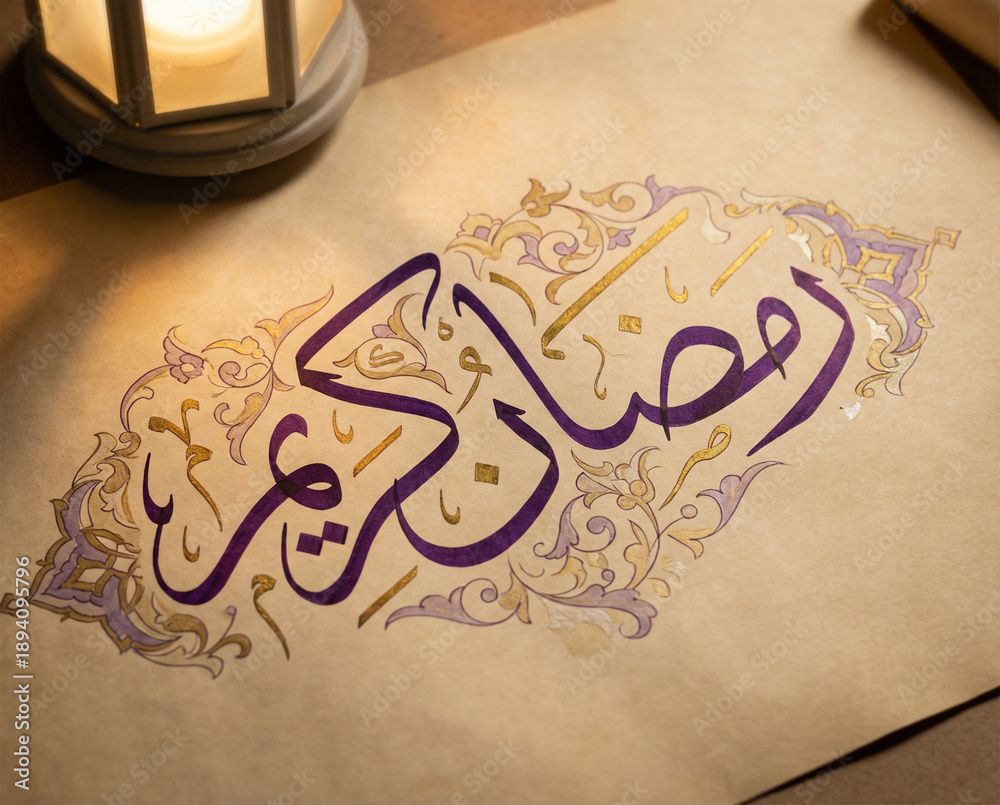 رمضان كريم
Adobe Stock | #1894095796